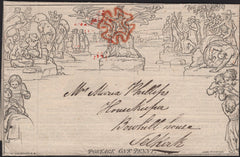 Mrs Maria Phillips
Housekeeper
Bowhill house
Selkirk
POSTAGE ONE PENNY